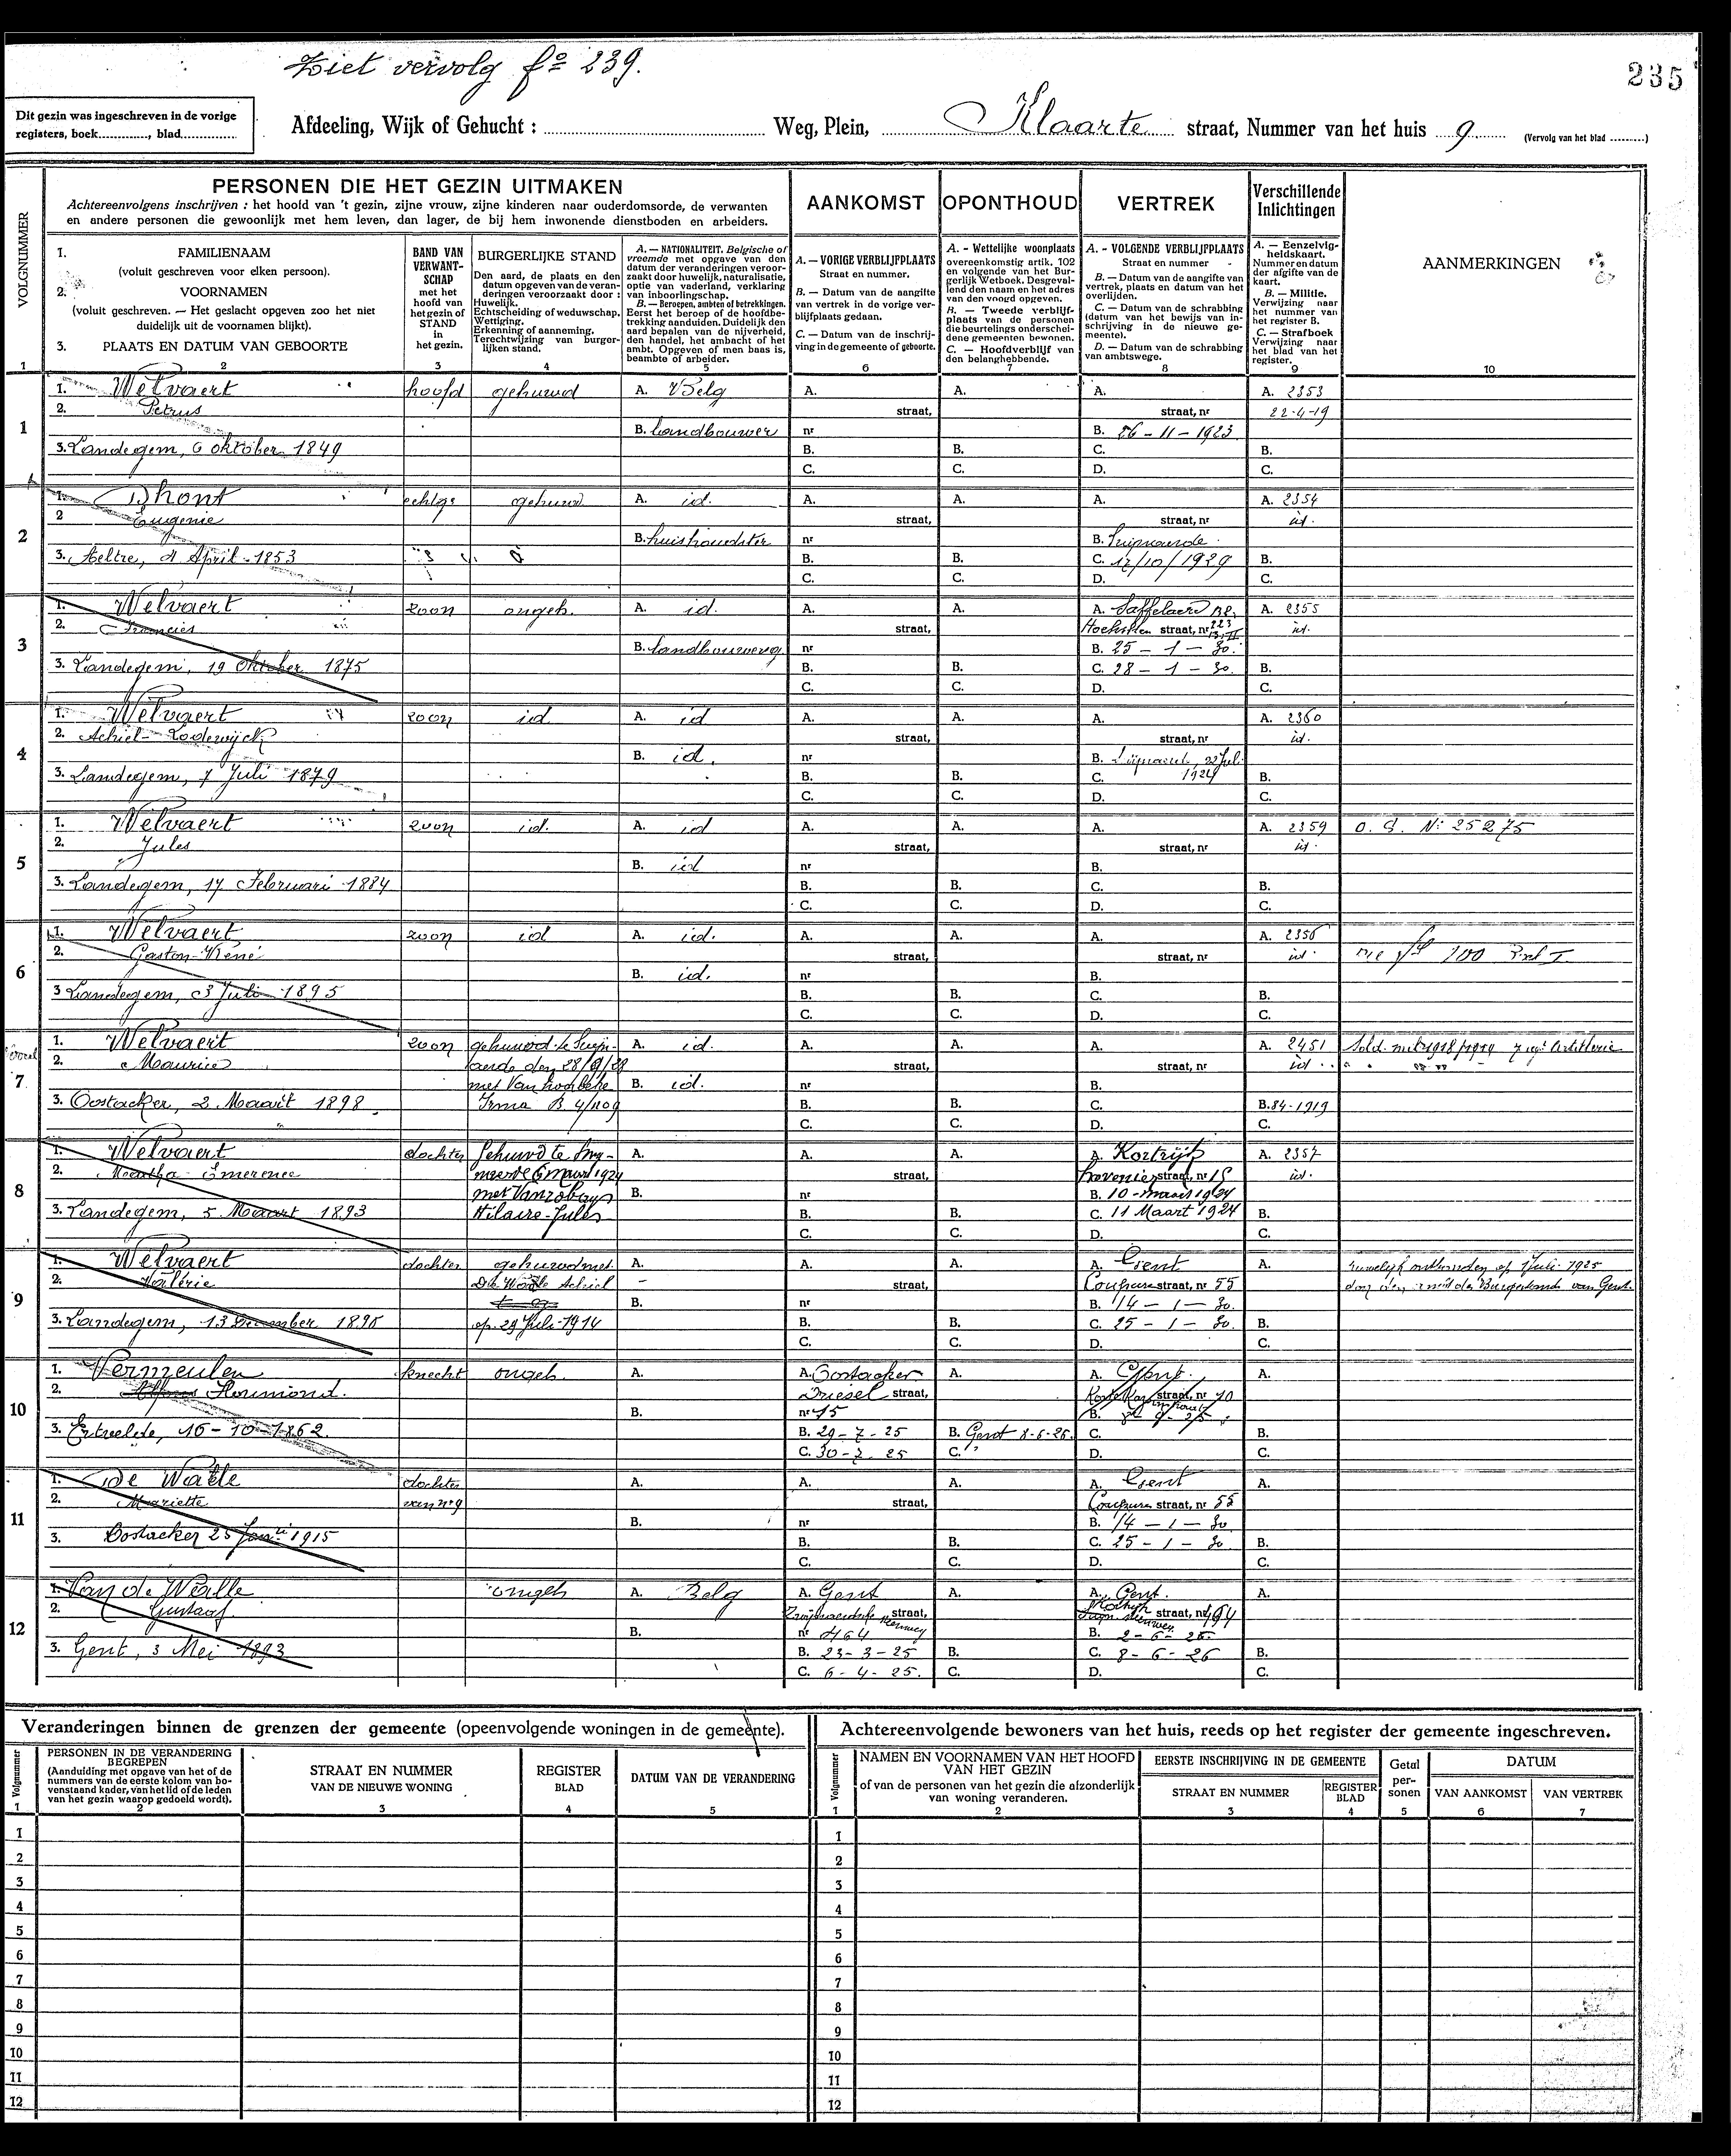 Ziet vervolg fo 239.
235
Dit gezin was ingeschreven in de vorige
registers, boek............, blad..............
Afdeeling, Wijk of Gehucht : Weg, Plein, Klaarte straat, Nummer van het huis 9 (Vervolg van het blad ..........)
VOLGNUMMER
PERSONEN DIE HET GEZIN UITMAKEN
Achtereenvolgens inschrijven : het hoofd van 't gezin, zijne vrouw, zijne kinderen naar ouderdomsorde, de verwanten
en andere personen die gewoonlijk met hem leven, dan lager, de bij hem inwonende dienstboden en arbeiders.
AANKOMST
OPONTHOUD
VERTREK
Verschillende
Inlichtingen
1. FAMILIENAAM
(voluit geschreven voor elken persoon).
2. VOORNAMEN
(voluit geschreven. — Het geslacht opgeven zoo het niet
duidelijk uit de voornamen blijkt).
3. PLAATS EN DATUM VAN GEBOORTE
BAND VAN
VERWANT-
SCHAP
met het
hoofd van
het gezin of
STAND
in
het gezin.
BURGERLIJKE STAND
Den aard, de plaats en den
datum opgeven van de veran-
deringen veroorzaakt door :
Huwelijk.
Echtscheiding of weduwschap.
Wettiging.
Erkenning of aanneming.
Terechtwijzing van burger-
lijken stand.
A. — NATIONALITEIT. Belgische of
vreemde met opgave van den
datum der veranderingen veroor-
zaakt door huwelijk, naturalisatie,
optie van vaderland, verklaring
van inboorlingschap.
B. — Beroepen, ambten of betrekkingen.
Eerst het beroep of de hoofdbe-
trekking aanduiden. Duidelijk den
aard bepalen van de nijverheid,
den handel, het ambacht of het
ambt. Opgeven of men baas is,
beambte of arbeider.
A. — VORIGE VERBLIJFPLAATS
Straat en nummer.
B. — Datum van de aangifte
van vertrek in de vorige ver-
blijfplaats gedaan.
C. — Datum van de inschrij-
ving in de gemeente of geboorte.
A. - Wettelijke woonplaats
overeenkomstig artik. 102
en volgende van het Bur-
gerlijk Wetboek. Desgeval-
lend den naam en het adres
van den voogd opgeven.
B. — Tweede verblijf-
plaats van de personen
die beurtelings onderschei-
dene gemeenten bewonen.
C. — Hoofdverblijf van
den belanghebbende.
A. - VOLGENDE VERBLIJFPLAATS
Straat en nummer
B. — Datum van de aangifte van
vertrek, plaats en datum van het
overlijden.
C. — Datum van de schrabbing
(datum van het bewijs van in-
schrijving in de nieuwe ge-
meente).
D. — Datum van de schrabbing
van ambtswege.
A. — Eenzelvig-
heidskaart.
Nummer en datum
der afgifte van de
kaart.
B. — Militie.
Verwijzing naar
het nummer van
het register B.
C. — Strafboek
Verwijzing naar
het blad van het
register.
AANMERKINGEN
1 2 3 4 5 6 7 8 9 10
1. Welvaert hoofd gehuwd A. Belg A. A. A. A. 2353
2. Petrus straat, straat, nr 22-4-19
1 B. landbouwer nr B. 26-11-1923
3. Landegem, 6 oktober 1849 B. B. C. B.
C. C. D. C.
1. Dhont echtge gehuwd A. id. A. A. A. A. 2354
2 Eugenie straat, straat, nr id.
2 B. huishoudster nr B.
3. Aeltre, April 1853 B. B. C. 12/10/1929 B.
C. C. D. C.
1. Welvaert zoon ongeh. A. id. A. A. A. Saffelaere A. 2355
2. Francies straat, straat, nr id.
3 B. nr B. 25-1-30.
3. Landegem, 19 Oktober 1875 B. B. C. 28-1-30. B.
C. C. D. C.
1. Welvaert zoon id A. id A. A. A. A. 2360
2. Achiel-Lodewijck straat, straat, nr id.
4 B. id. nr B. 22 Jul.
3. Landegem, 7 Juli 1879 B. B. C. 1924 B.
C. C. D. C.
1. Welvaert zoon id. A. id A. A. A. A. 2359 O. S. No 25275
2. Jules straat, straat, nr id.
5 B. id nr B.
3. Landegem, 17 Februari 1884 B. B. C. B.
C. C. D. C.
1. Welvaert zoon id A. id. A. A. A. A. 2356
2. Gaston-René straat, straat, nr id. 100
6 B. id. nr B.
3 Landegem, 3 Juli 1895 B. B. C. B.
C. C. D. C.
1. Welvaert zoon gehuwd te A. id. A. A. A. A. 2451 Sold. mil. 1918/1919 7 regt Artillerie
2. Maurice den 28/9/29 straat, straat, nr id.
7 met Van hoorbeke B. id. nr B.
3. Oostacker, 2 Maart 1898 Irma B. B. C. B. 84-1919
C. C. D. C.
1. Welvaert dochter Gehuwd te A. A. A. A. Kortrijk A. 2357
2. Martha Emerence Maart 1924 straat, straat, nr 15 id.
8 met Vanrobays B. nr B. 10-maart 1924
3. Landegem, 5 Maart 1893 Hilaire-Jules B. B. C. 11 Maart 1924 B.
C. C. D. C.
1. Welvaert dochter gehuwd met A. A. A. A. Gent A. huwelijk ontbonden op 1 Juli 1925
2. Valérie De Walle Achiel straat, Coupure straat, nr 55 Burgerstand van Gent.
9 B. nr B. 14-1-30.
3. Landegem, 13 December 1890 op 29 Juli 1914 B. B. C. 25-1-30. B.
C. C. D. C.
1. Vermeulen knecht ongeh. A. A. Oostacker A. A. Gent. A.
2. Floumond. Driesel straat, straat, nr 10
10 B. nr 15 B.
3. Ertvelde, 16-10-1862. B. 29-7-25 B. Gent 8-6-26. C. B.
C. 30-7-25 C. D. C.
1. De Walle dochter A. A. A. A. Gent A.
2. Mariette van nr 9 straat, Coupure straat, nr 55
11 B. nr B. 14-1-30
3. Oostacker 25 1915 B. B. C. 25-1-30. B.
C. C. D. C.
1. Van de Walle ongeh A. Belg A. Gent A. A. Gent. A.
2. Gustaaf straat, straat, nr
12 B. nr 464 B. 2-6-26.
3. Gent, 3 Mei 1893 B. 23-3-25 B. C. 8-6-26 B.
C. 6-4-25. C. D. C.
Veranderingen binnen de grenzen der gemeente (opeenvolgende woningen in de gemeente).
Volgnummer
PERSONEN IN DE VERANDERING
BEGREPEN
(Aanduiding met opgave van het of de
nummers van de eerste kolom van bo-
venstaand kader, van het lid of de leden
van het gezin waarop gedoeld wordt).
STRAAT EN NUMMER
VAN DE NIEUWE WONING
REGISTER
BLAD
DATUM VAN DE VERANDERING
1 2 3 4 5
1
2
3
4
5
6
7
8
9
10
11
12
Achtereenvolgende bewoners van het huis, reeds op het register der gemeente ingeschreven.
Volgnummer
NAMEN EN VOORNAMEN VAN HET HOOFD
VAN HET GEZIN
of van de personen van het gezin die afzonderlijk
van woning veranderen.
EERSTE INSCHRIJVING IN DE GEMEENTE
STRAAT EN NUMMER
REGISTER
BLAD
Getal
per-
sonen
DATUM
VAN AANKOMST
VAN VERTREK
1 2 3 4 5 6 7
1
2
3
4
5
6
7
8
9
10
11
12